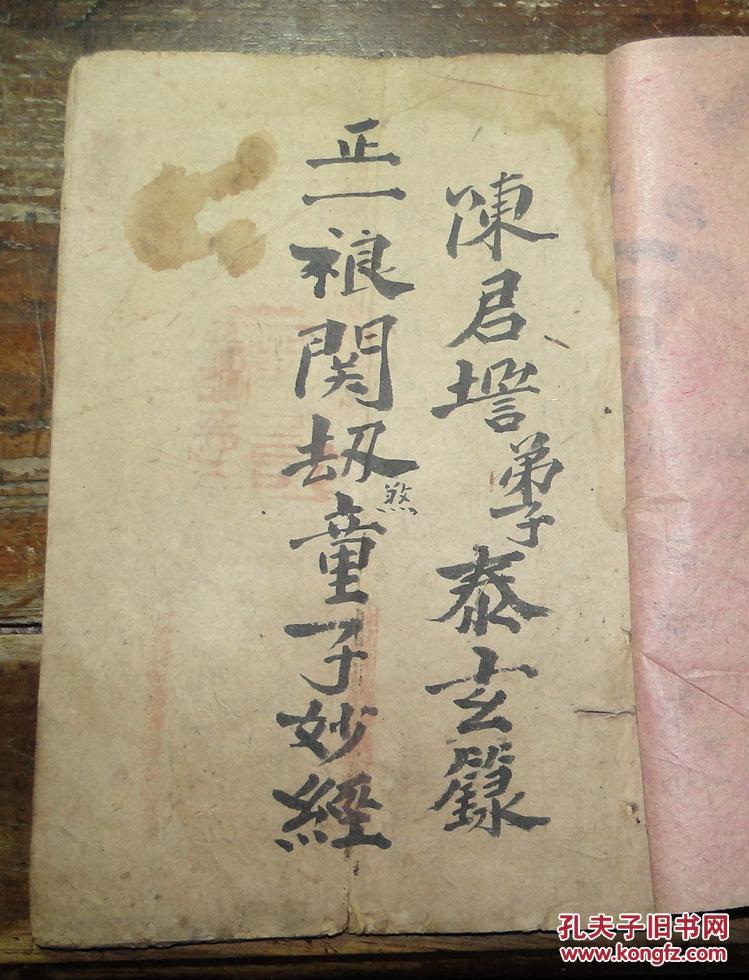 陳君弟子泰玄籙
正一関刧煞童子妙經
孔夫子旧书网
www.kongfz.com